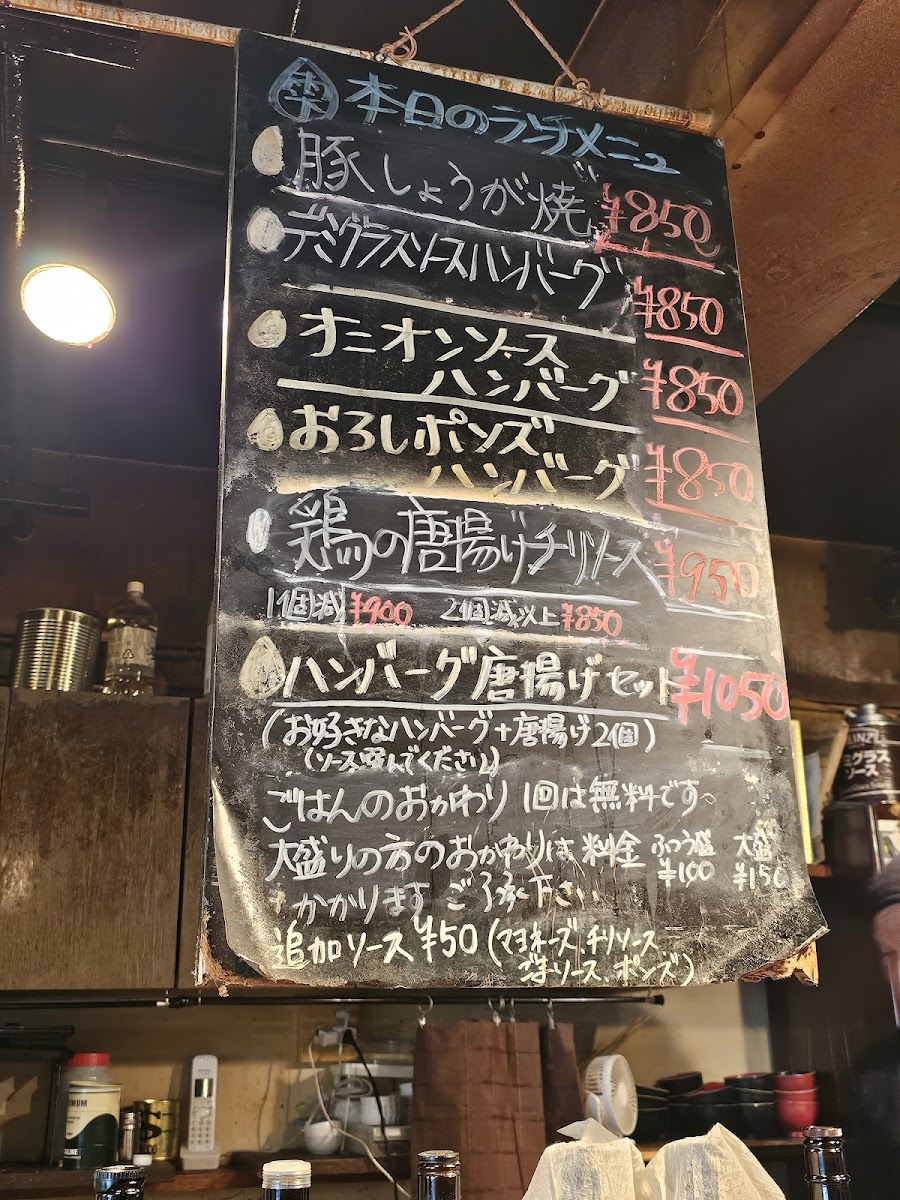 雫 本日のランチメニュー
豚しょうが焼 ¥850
デミグラスソースハンバーグ ¥850
オニオンソース
ハンバーグ ¥850
おろしポンズ
ハンバーグ ¥850
鶏の唐揚げチリソース ¥950
1個減¥900 2個減以上¥850
ハンバーグ唐揚げセット ¥1050
(お好きなハンバーグ+唐揚げ2個)
(ソース選んでください)
ごはんのおかわり 1回は無料です
大盛りの方のおかわりは 料金 ふつう盛 大盛
¥100 ¥150
かかります ご了承下さい
追加ソース ¥50 (マヨネーズ、チリソース
ごまソース、ポンズ)
ミグラス
ソース